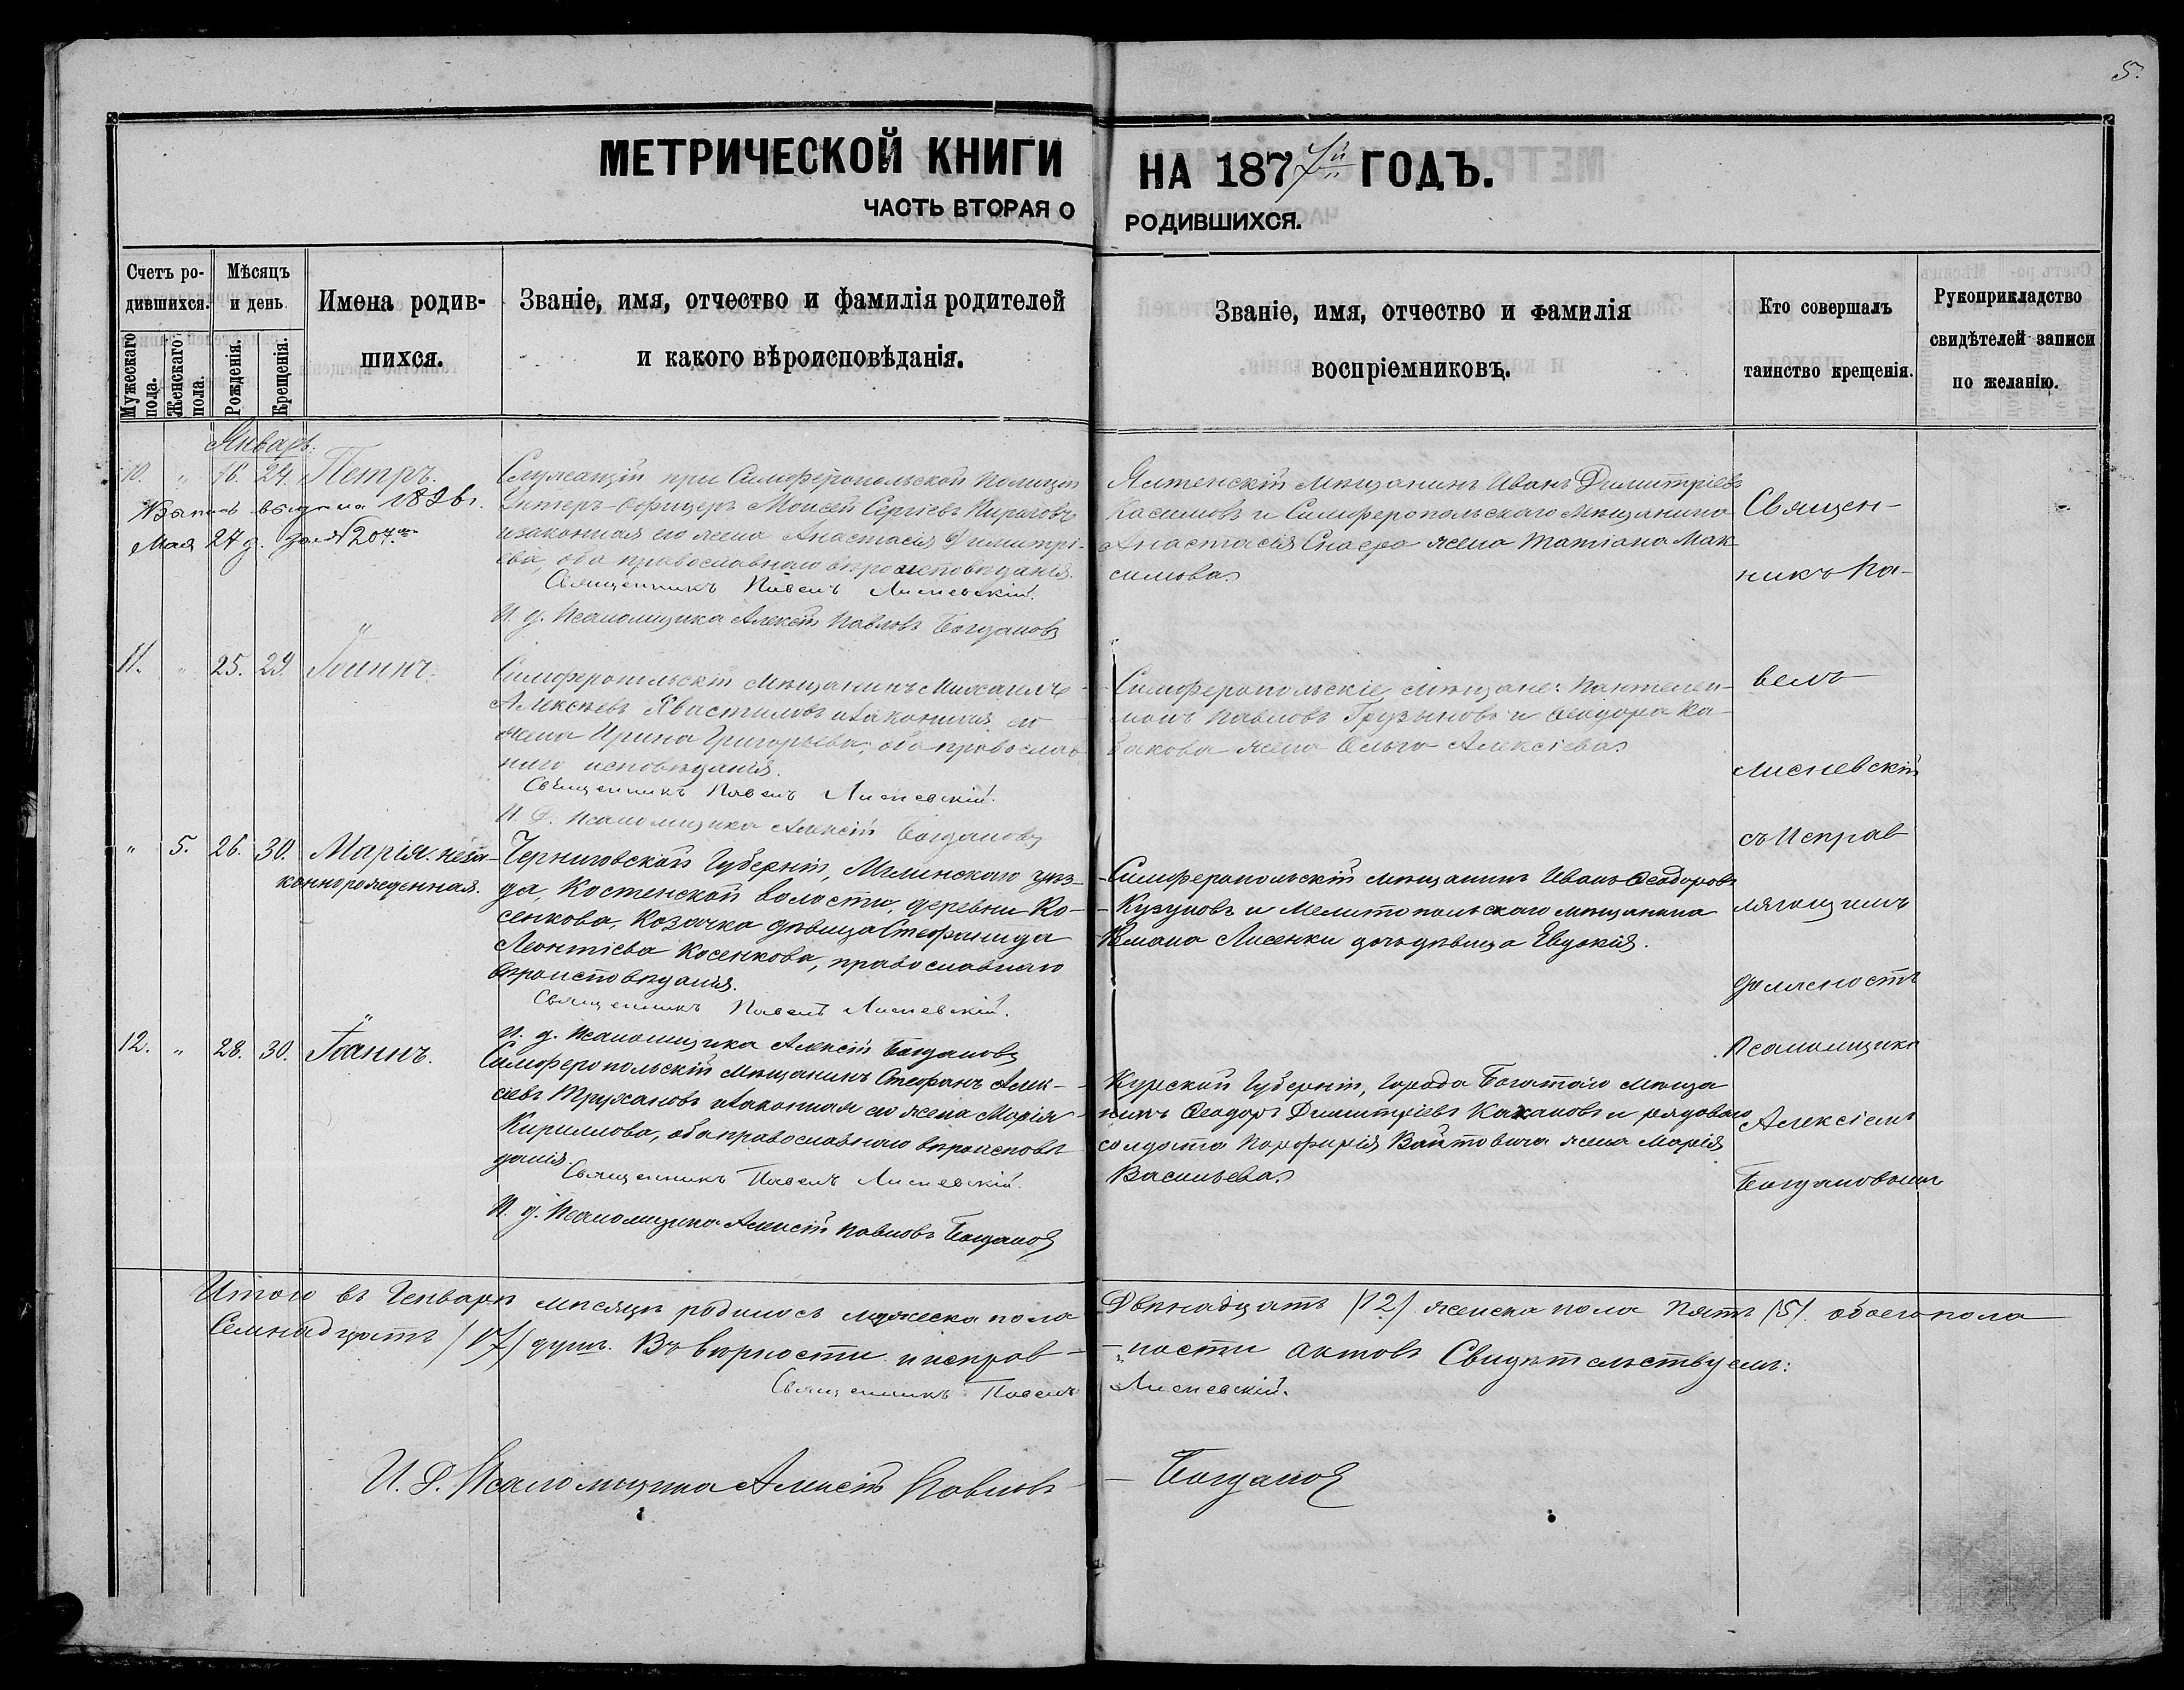 5.
МЕТРИЧЕСКОЙ КНИГИ НА 1877й ГОДЪ.
ЧАСТЬ ВТОРАЯ О РОДИВШИХСЯ.
Счетъ родившихся.
Мужескаго пола.
Женскаго пола.
Мѣсяцъ и день
Рожденія.
Крещенія.
Имена родив-
шихся.
Званіе, имя, отчество и фамилія родителей
и какого вѣроисповѣданія.
Званіе, имя, отчество и фамилія
воспріемниковъ.
Кто совершалъ
таинство крещенія.
Рукоприкладство
свидѣтелей записи
по желанію.
Январь.
10. " 16. 24. Петръ.
выдана
Мая 27 д. за № 207.
Служащій при Симферопольской Полиціи
Унтеръ-Офицеръ Моисей Сергіевъ
и законная его жена Анастасія Димитрі-
ева, оба православнаго вѣроисповѣданія.
Священникъ Павелъ Лисневскій.
И. д. Псаломщика Алексѣй Павловъ Богдановъ
Ялтенскій мѣщанинъ Иванъ Димитріевъ
Касимовъ и Симферопольскаго мѣщанина
Анастасія жена Татіана Мак-
симова
11. " 25. 29. Іоаннъ.
Симферопольскій мѣщанинъ Михаилъ
Алексѣевъ и законная его
жена Ирина Григорьева, оба православ-
наго исповѣданія.
Священникъ Павелъ Лисневскій.
И. Д. Псаломщика Алексій Богдановъ
Симферопольскіе мѣщане: Пантелей-
монъ Павловъ Грузиновъ и Ѳеодора Ка-
закова жена Ольга Алексіева
" 5. 26. 30. Марія. неза-
коннорожденная.
Черниговской Губерніи, Мглинскаго уѣз-
да, Костенской волости, деревни Ко-
сенкова, Козачка дѣвица Стефанида
Леонтіева Косенкова, православнаго
вѣроисповѣданія.
Священникъ Павелъ Лисневскій.
И. д. Псаломщика Алексій Богдановъ
Симферопольскій мѣщанинъ Иванъ Ѳеодоровъ
Кузуновъ и Мелитопольскаго мѣщанина
Лисенки дочь дѣвица Евдокія.
12. " 28. 30. Іоаннъ.
Симферопольскій мѣщанинъ Стефанъ Алек-
сіевъ Тружановъ и законная его жена Марія
Кириллова, оба православнаго вѣроисповѣ
данія.
Священникъ Павелъ Лисневскій.
И. д. Псаломщика Алексій Павловъ Богдановъ
Курской Губерніи, города Богатаго мѣща
нинъ Ѳеодоръ Димитріевъ Кахановъ и рядоваго
солдата Порфирія Войтовича жена Марія
Васильева
Священ-
никъ Па-
велъ
Лисневскій
съ Исправ
ляющимъ
должность
Псаломщика
Алексіемъ
Богдановымъ
Итого въ Генварѣ мѣсяцѣ родилось мужеска пола Двѣнадцать /12/ женска пола Пять /5/. обоего пола
Семнадцать /17/ душъ. Въ вѣрности и исправ-ности актовъ Свидѣтельствуемъ:
Священникъ Павелъ Лисневскій.
И. Д. Псаломщика Алексій Павловъ Богдановъ